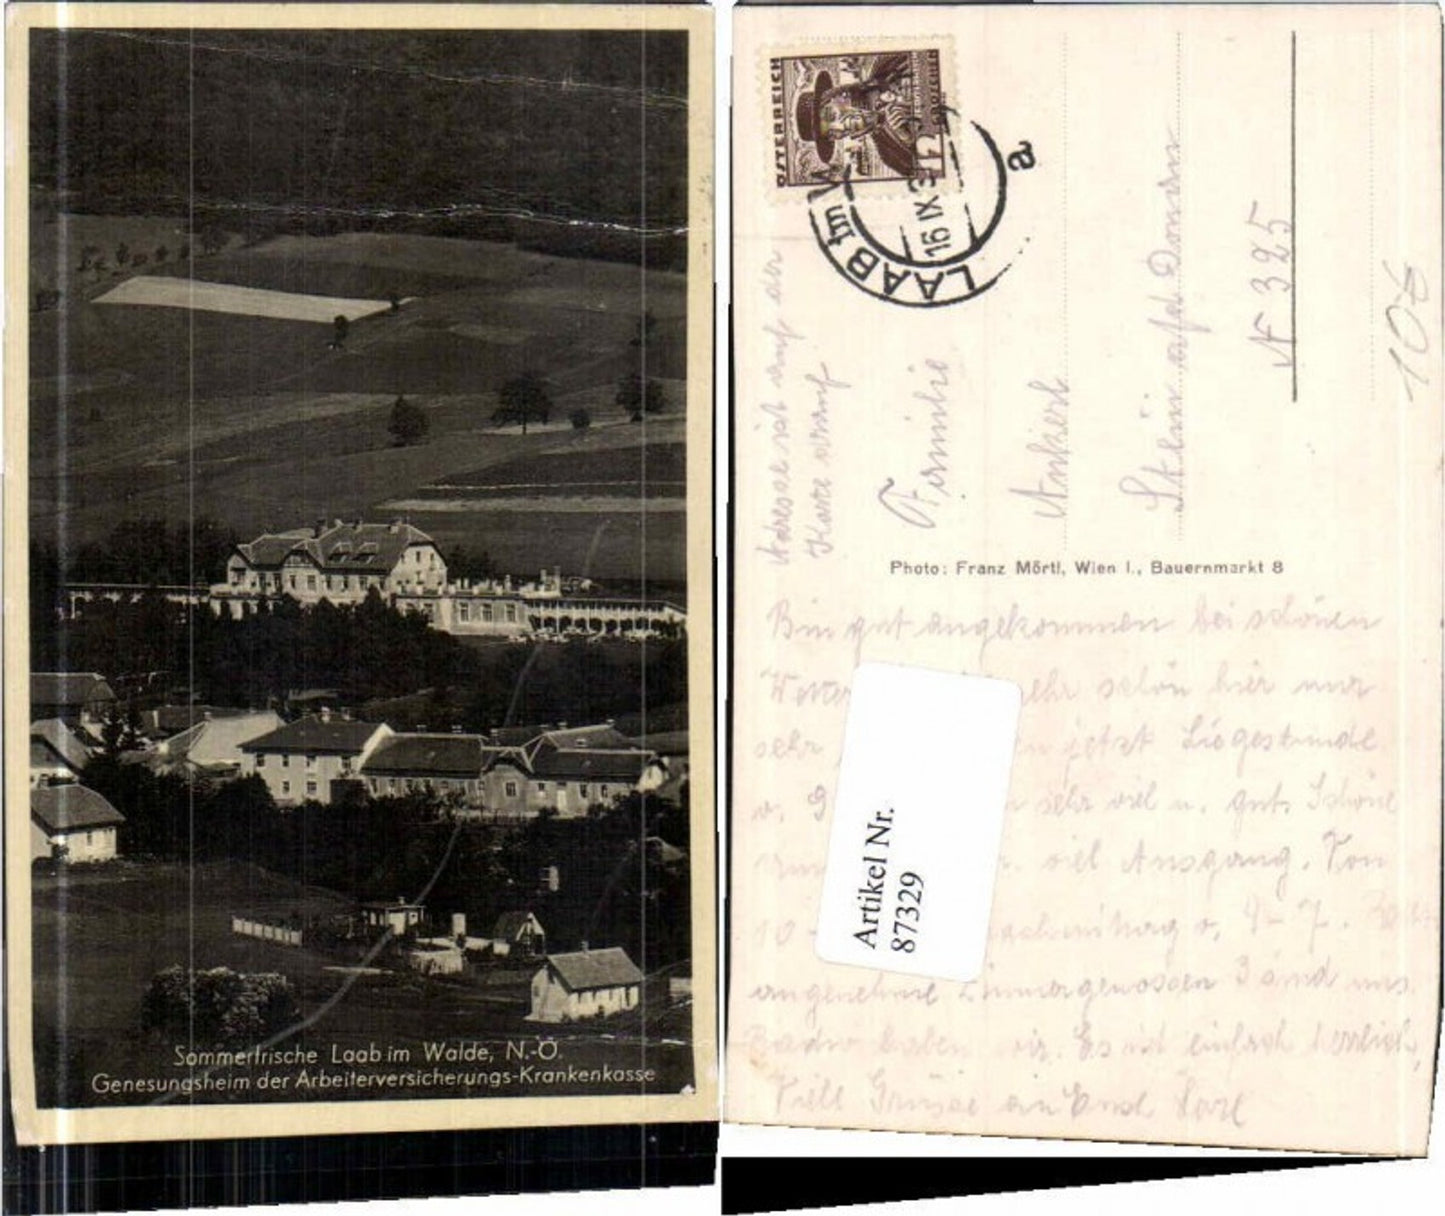 Sommerfrische Laab im Walde, N.-Ö.
Genesungsheim der Arbeiterversicherungs-Krankenkasse
ÖSTERREICH
12 GROSCHEN
LAAB im W
16 IX 3
a
Adresse ist auf der
Karte worauf
Familie
Ankerl
Stein a/d Donau
N 325
10€
Photo: Franz Mörtl, Wien I., Bauernmarkt 8
Bin gut angekommen bei schönen
Wetter sehr schön hier nur
sehr jetzt Liegestunde
sehr viel u. gut. Schöne
viel Ausgang. Von
10 - 9-7.
angenehme Zimmergenossen 3 sind uns.
Radio haben wir. Es ist einfach herrlich,
Viele Grüsse an Euch Karl
Artikel Nr.
87329